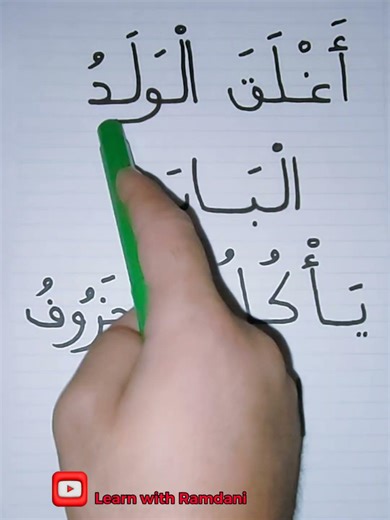 أَغْلَقَ الْوَلَدُ
الْبَابَ
يَأْكُلُ
Learn with Ramdani